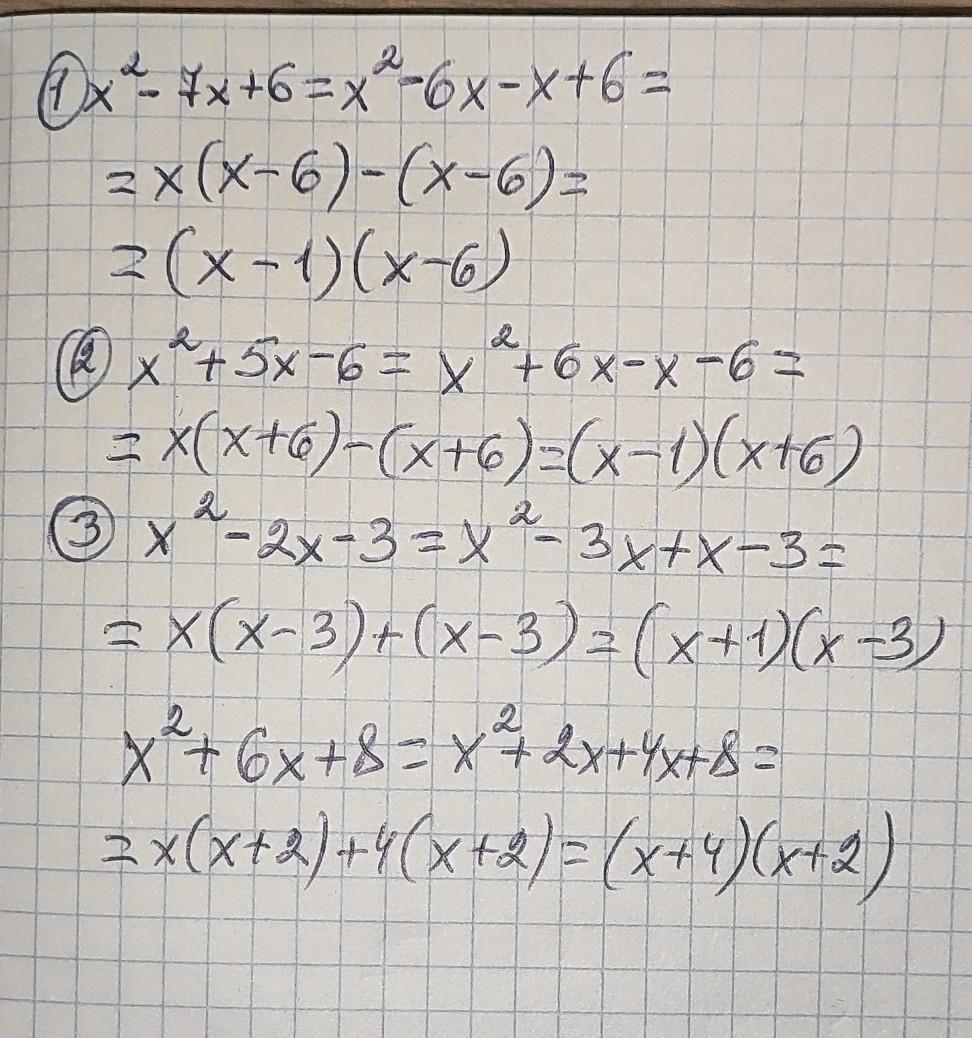 ① x² - 7x + 6 = x² - 6x - x + 6 =
= x(x - 6) - (x - 6) =
= (x - 1)(x - 6)
② x² + 5x - 6 = x² + 6x - x - 6 =
= x(x + 6) - (x + 6) = (x - 1)(x + 6)
③ x² - 2x - 3 = x² - 3x + x - 3 =
= x(x - 3) + (x - 3) = (x + 1)(x - 3)
x² + 6x + 8 = x² + 2x + 4x + 8 =
= x(x + 2) + 4(x + 2) = (x + 4)(x + 2)